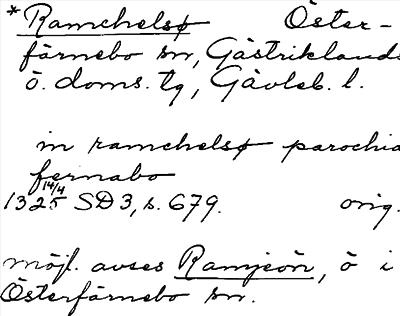 *Ramchelsø Öster-
färnebo sn, Gästriklands
ö. doms. tg, Gävleb. l.
in ramchelsø parochia
fernabo
14/4
1325 SD 3, s. 679. orig.
möjl. avses Ramsjön, ö i
Österfärnebo sn.